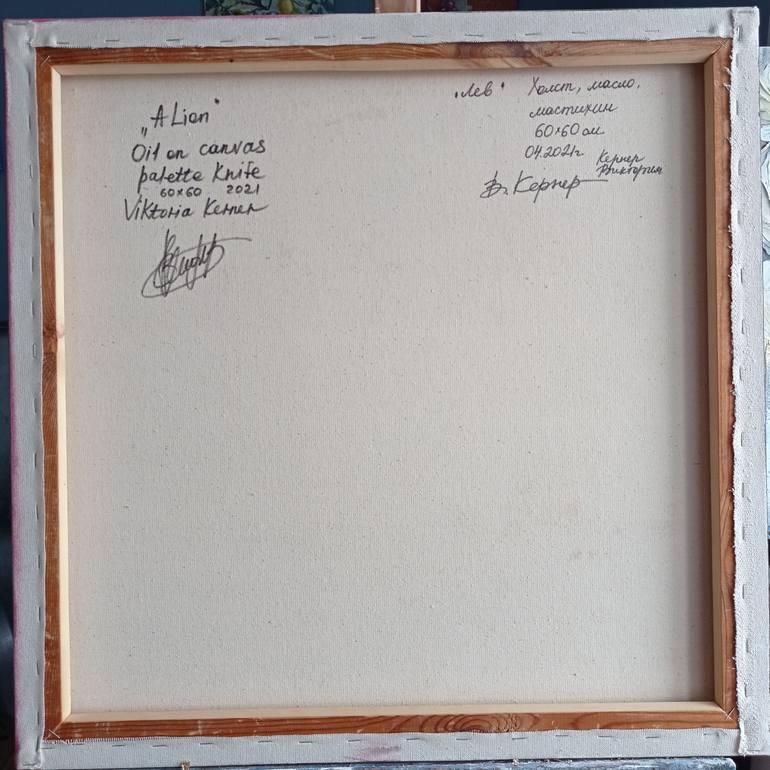 „A Lion"
Oil on canvas
palette Knife
60×60 2021
Viktoria Kerner
„Лев" Холст, масло,
мастихин
60×60 см
04.2021г.
Кернер
Виктория
В. Кернер